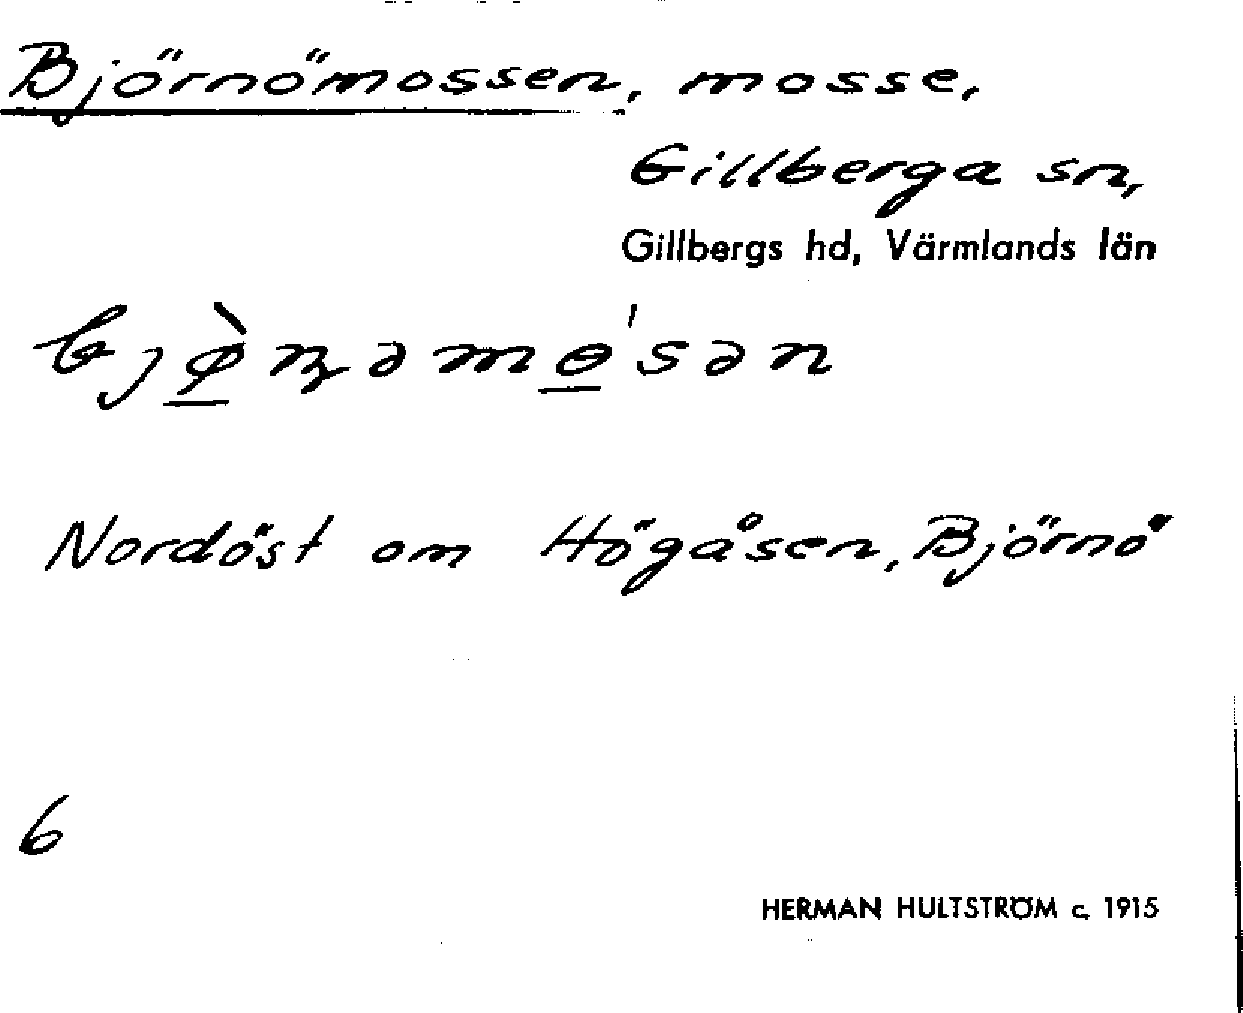 Björnömossen, mosse,
Gillberga sn,
Gillbergs hd, Värmlands län
bjø̱̀ɳəmɵ̱'sən
Nordöst om Högåsen, Björnö
6
HERMAN HULTSTRÖM c. 1915